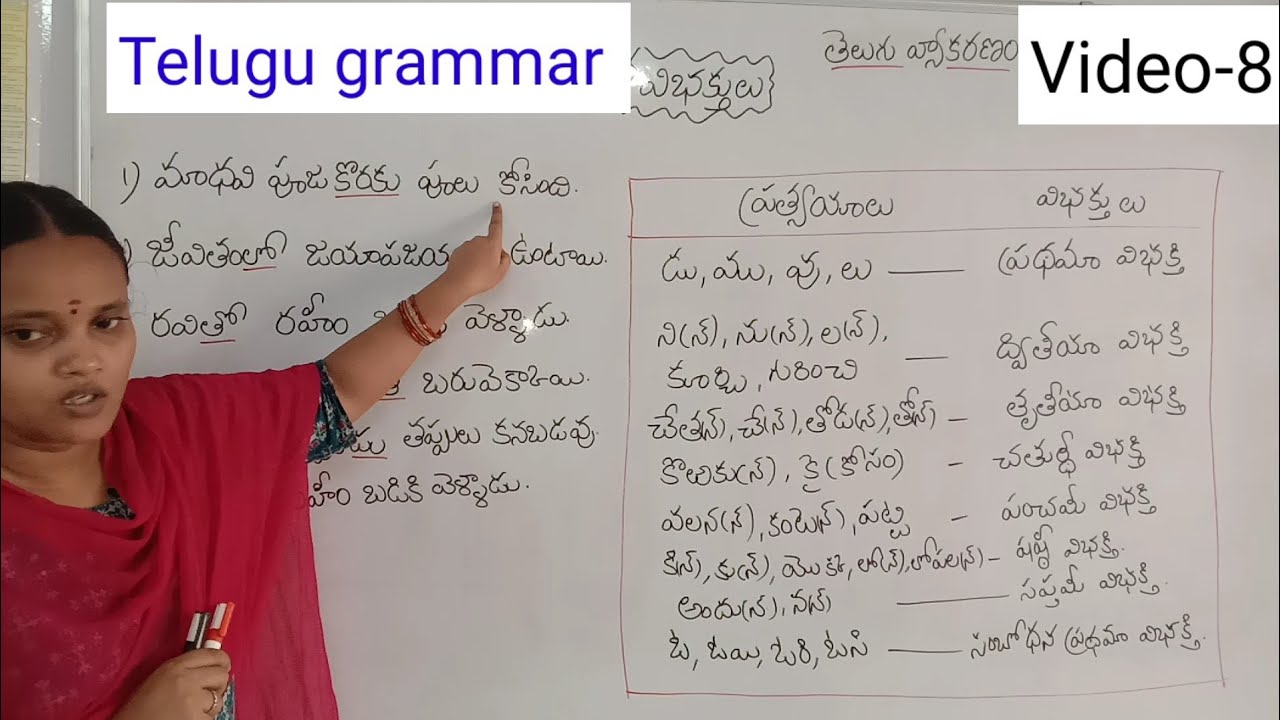 Telugu grammar
తెలుగు వ్యాకరణం
Video-8
విభక్తులు
1) మాధవి పూజ కొరకు పూలు కోసింది.
జీవితంలో ఉంటాయి.
రవితో రహీం వెళ్ళాడు.
బరువెకావోయి.
తప్పులు కనబడవు.
బడికి వెళ్ళాడు.
ప్రత్యయాలు విభక్తులు
డు, ము, వు, లు — ప్రథమా విభక్తి
ని(న్), ను(న్), ల(న్),
కూర్చి, గురించి — ద్వితీయా విభక్తి
చేత(న్), చే(న్), తోడ(న్), తో(న్) – తృతీయా విభక్తి
కొఱకు(న్), కై (కోసం) – చతుర్థీ విభక్తి
వలన(న్), కంటె(న్), పట్టి – పంచమీ విభక్తి
కి(న్), కు(న్), యొక్క, లో(న్), లోపల(న్) – షష్ఠీ విభక్తి.
అందు(న్), న(న్) — సప్తమీ విభక్తి.
ఓ, ఓయి, ఓరి, ఓసి — సంబోధన ప్రథమా విభక్తి.